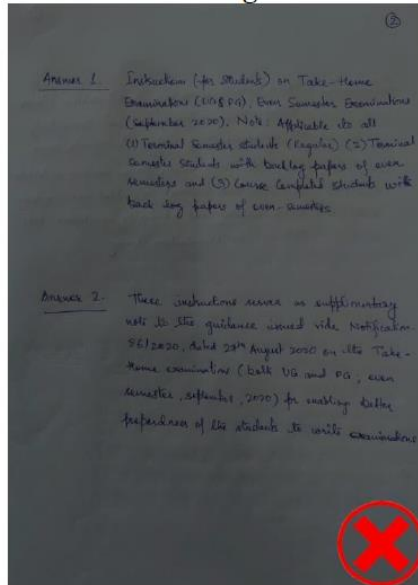 ②
Answer 1. Instructions (for students) on Take-Home
Examinations (UG & PG), Even Semester Examinations
(September 2020), Note: Applicable to all
(1) Terminal Semester students (Regular) (2) Terminal
Semester Students with backlog papers of even
semesters and (3) Course Completed students with
back log papers of even-semesters
Answer 2. These instructions serve as supplimentary
note to the guidance issued vide Notification
/2020, dated August 2020 on the Take-
Home examination (both UG and PG, even
semester, september, 2020) for enabling better
preparedness of the students to write examinations